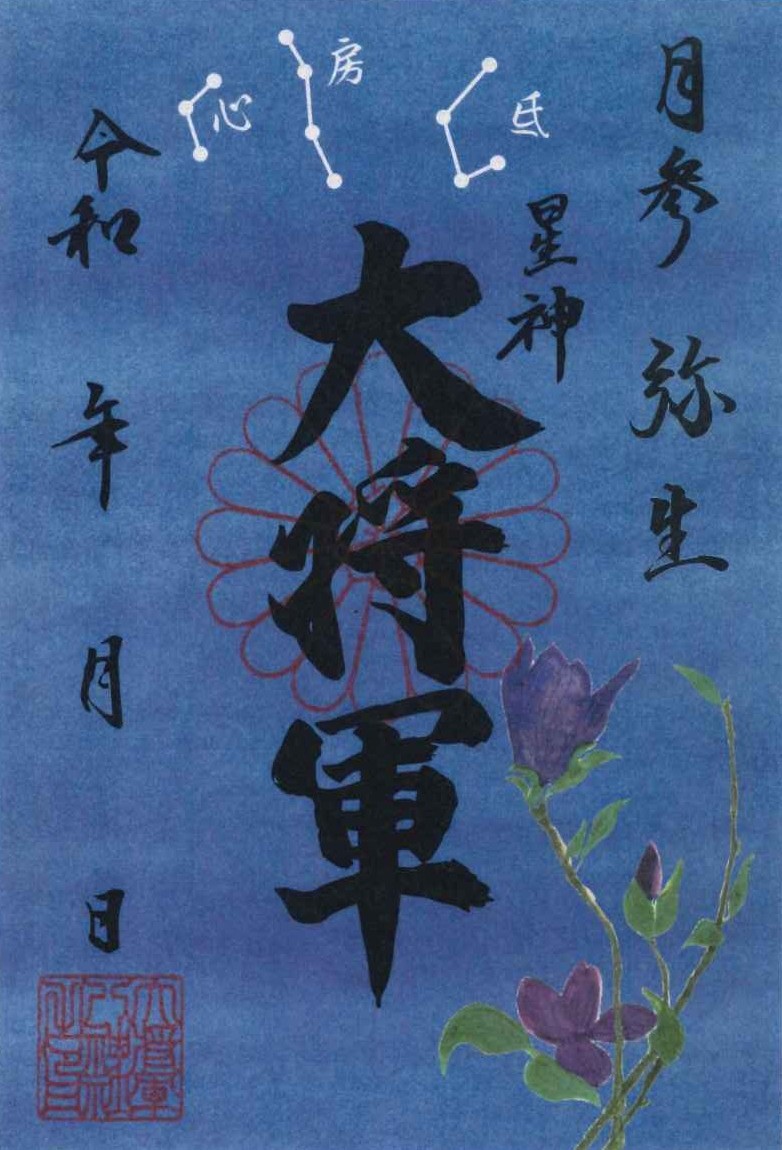 月参 弥生
氐
房
心
星神
大将軍
令和 年 月 日